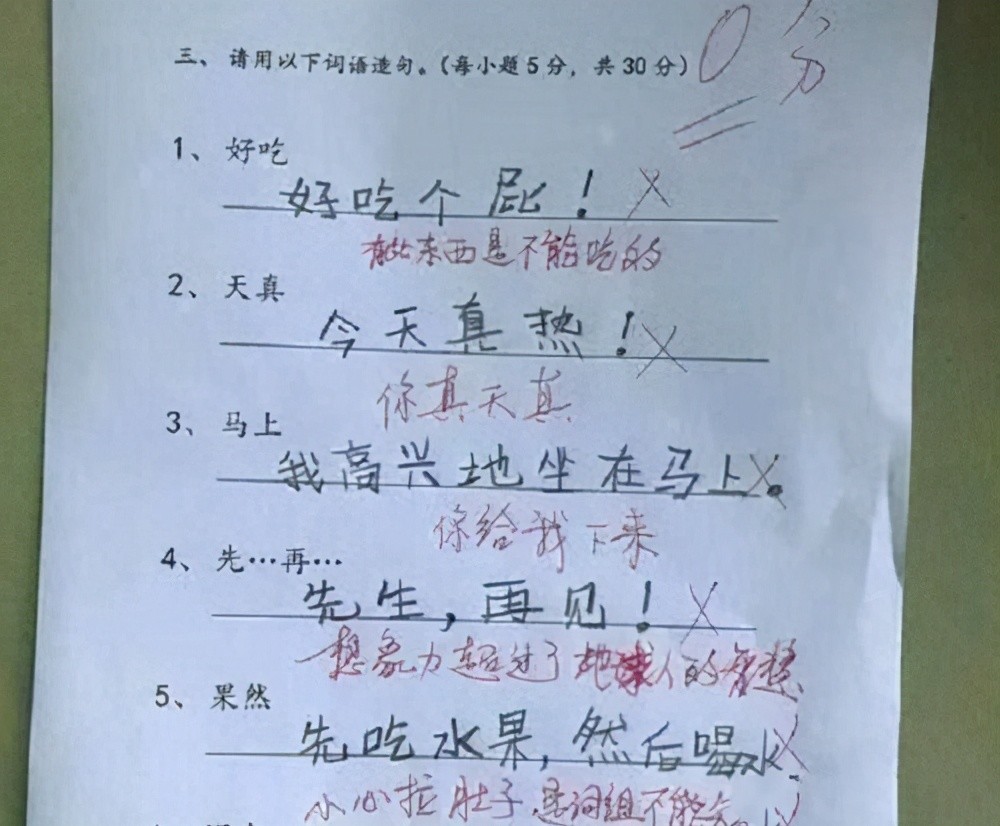 三、请用以下词语造句。(每小题5分,共30分) 0分
1、好吃
好吃个屁! ×
有些东西是不能吃的
2、天真
今天真热! ×
你真天真
3、马上
我高兴地坐在马上。 ×
你给我下来
4、先…再…
先生,再见! ×
想象力超过了地球人的智慧
5、果然
先吃水果,然后喝水. ×
小心拉肚子,是词组不能分